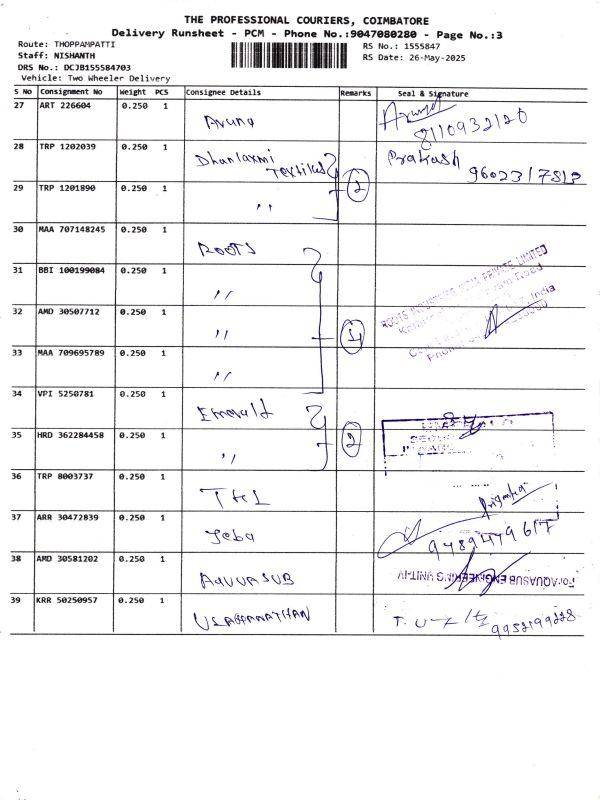 THE PROFESSIONAL COURIERS, COIMBATORE
Delivery Runsheet - PCM - Phone No.:9047080280 - Page No.:3
Route: THOPPAMPATTI
RS No.: 1555847
Staff: NISHANTH
RS Date: 26-May-2025
DRS No.: DCJB15558 4703
Vehicle: Two Wheeler Delivery
S No Consignment No Weight PCS Consignee Details Remarks Seal & Signature
27 ART 226604 0.250 1 Aruna 8110932120
28 TRP 1202039 0.250 1 Dhanlaxmi Textiles Prakash
29 TRP 1201890 0.250 1 " 2
30 MAA 707148245 0.250 1 ROOTS
31 BBI 100199084 0.250 1 "
ROOTS INDUSTRIES INDIA PRIVATE LIMITED
32 AMD 30507712 0.250 1 " 4
33 MAA 709695789 0.250 1 "
34 VPI 5250781 0.250 1 Emerald
35 HRD 362284458 0.250 1 " 2
36 TRP 8003737 0.250 1
37 ARR 30472839 0.250 1 Jeba 9489479617
38 AMD 30581202 0.250 1 AQUUASUB For AQUASUB ENGINEERING UNIT-IV
39 KRR 50250957 0.250 1 ULAGANATHAN 9952199228